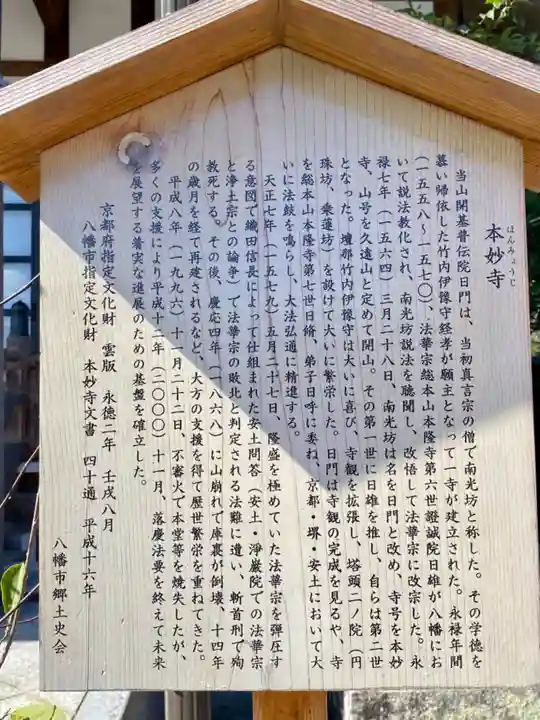 ほんみょうじ
本妙寺
当山開基普伝院日門は、当初真言宗の僧で南光坊と称した。その学徳を
慕い帰依した竹内伊豫守経孝が願主となって一寺が建立された。永禄年間
（一五五八～一五七〇）、法華宗総本山本隆寺第六世證誠院日雄が八幡にお
いて説法教化され、南光坊説法を聴聞し、改悟して法華宗に改宗した。永
禄七年（一五六四）三月二十八日、南光坊は名を日門と改め、寺号を本妙
寺、山号を久遠山と定めて開山。その第一世に日雄を推し、自らは第二世
となった。壇那竹内伊豫守は大いに喜び、寺観を拡張し、塔頭二ノ院（円
珠坊、乗蓮坊）を設けて大いに繁栄した。日門は寺観の完成を見るや、寺
を総本山本隆寺第七世日脩、弟子日呼に委ね、京都・堺・安土において大
いに法鼓を鳴らし、大法弘通に精進する。
天正七年（一五七九）五月二十七日、隆盛を極めていた法華宗を弾圧す
る意図で織田信長によって仕組まれた安土問答（安土・浄厳院での法華宗
と浄土宗との論争）で法華宗の敗北と判定される法難に遭い、斬首刑で殉
教死する。その後、慶応四年（一八六八）に山崩れで庫裏が倒壊、十四年
の歳月を経て再建されるなど、大方の支援を得て歴世繁栄を重ねてきた。
平成八年（一九九六）十一月二十二日、不審火で本堂等を焼失したが、
多くの支援により平成十二年（二〇〇〇）十一月、落慶法要を終えて未来
を展望する着実な進展のための基盤を確立した。
京都府指定文化財 雲版 永徳二年 壬戌八月
八幡市指定文化財 本妙寺文書 四十通 平成十六年
八幡市郷土史会